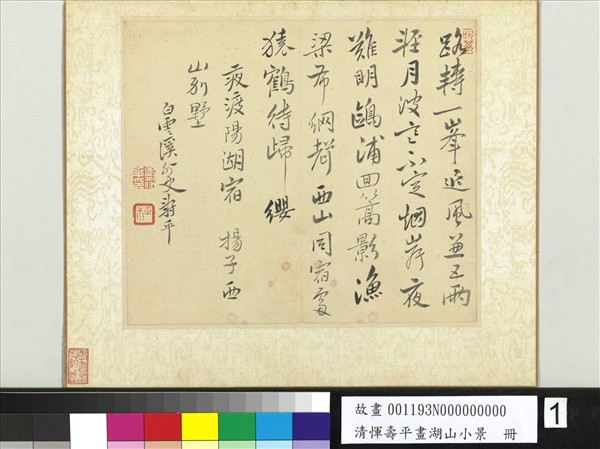 路轉一峯近風兼五兩
輕月波不定烟岸夜
難明鷗浦回篙影漁
梁布網聲西山同宿處
猿鶴待歸纓
夜渡陽湖宿 楊子西
山別墅
白雲溪外史壽平
故畫 001193N000000000
清惲壽平畫湖山小景 冊
1